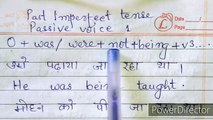 Past Imperfect tense
Passive voice 1
O + was/were + not + being + v3...
उसे पढ़ाया जा रहा था।
He was being taught.
मोहन को पी जा